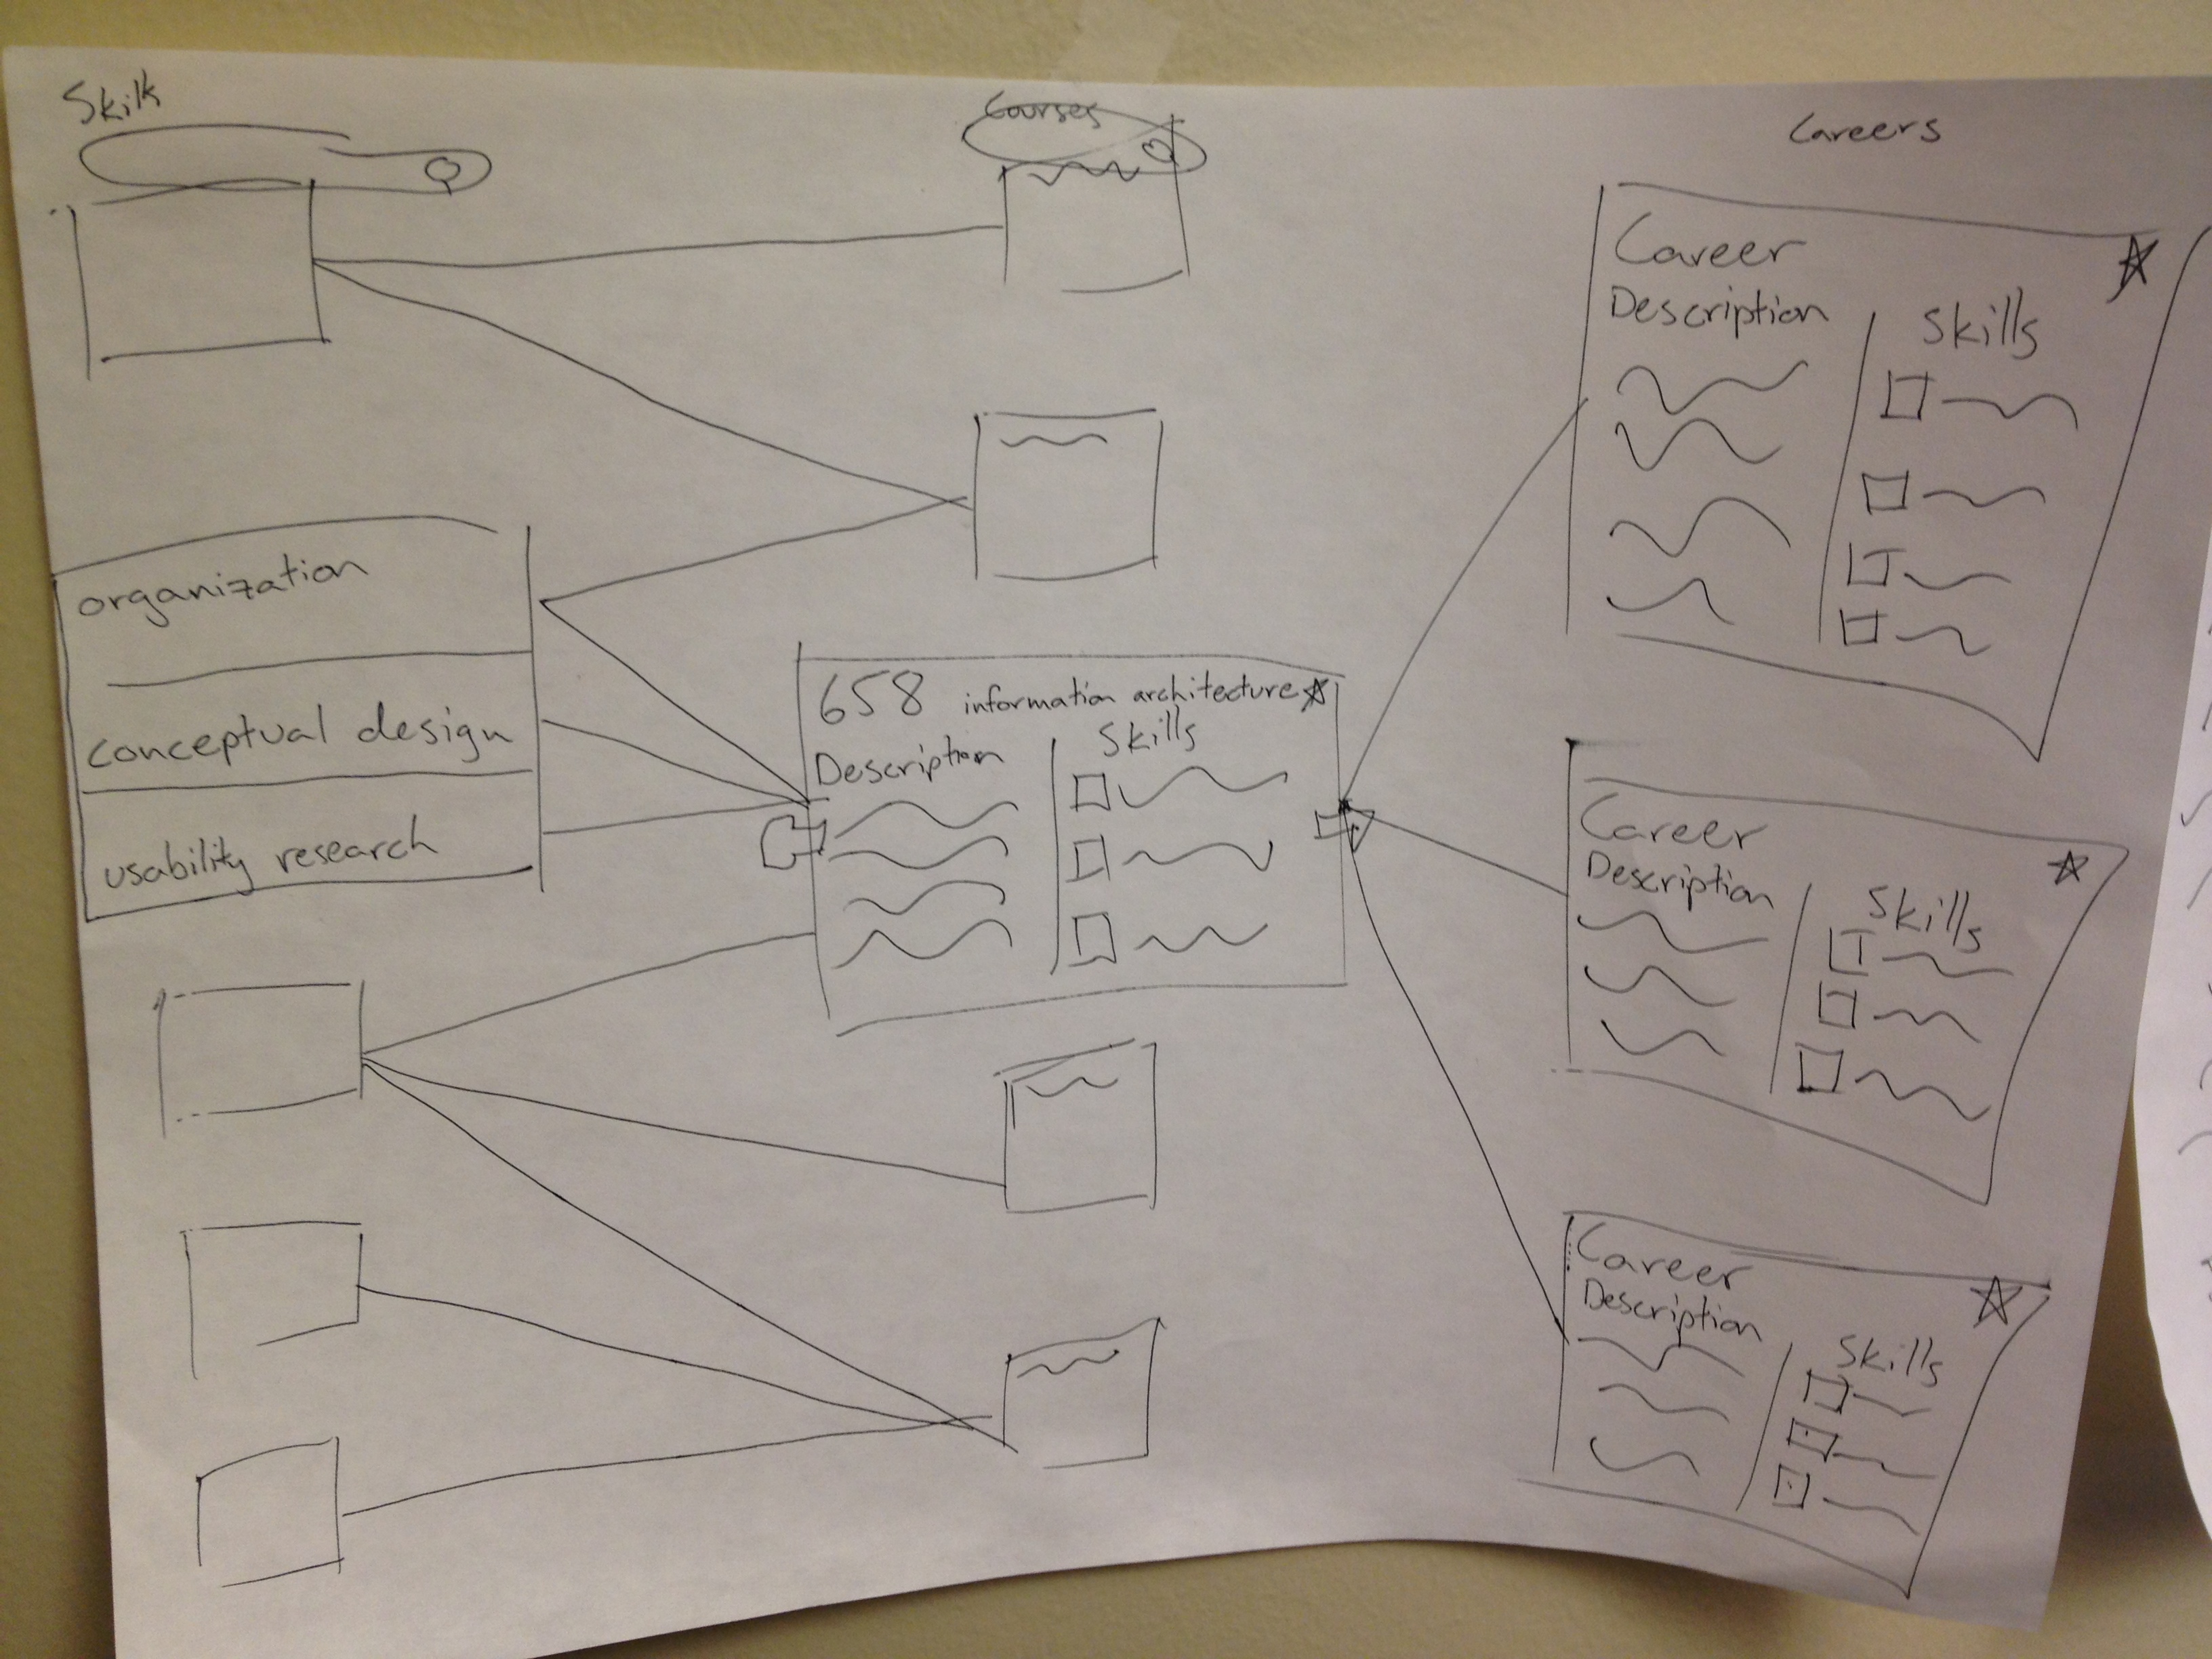 Skills
organization
conceptual design
usability research
Courses
658 information architecture
Description
Skills
Careers
Career
Description
Skills
Career
Description
Skills
Career
Description
Skills